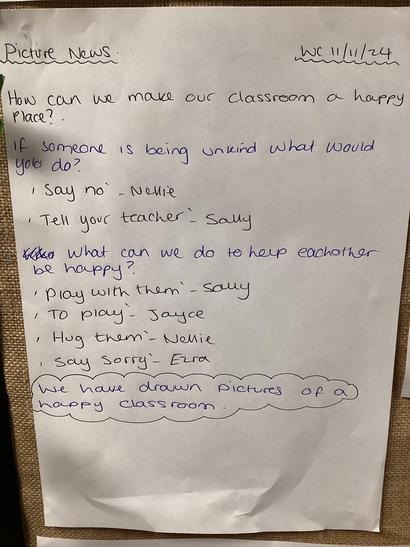 Picture News.
WC 11/11/24
How can we make our classroom a happy
Place?.
If someone is being unkind what would
you do?
' Say no' - Nellie
' Tell your teacher' - Sally
What can we do to help eachother
be happy?
' Play with them' - Sally
' To play' - Jayce
' Hug them' - Nellie
' Say sorry' - Ezra
We have drawn pictures of a
happy classroom.